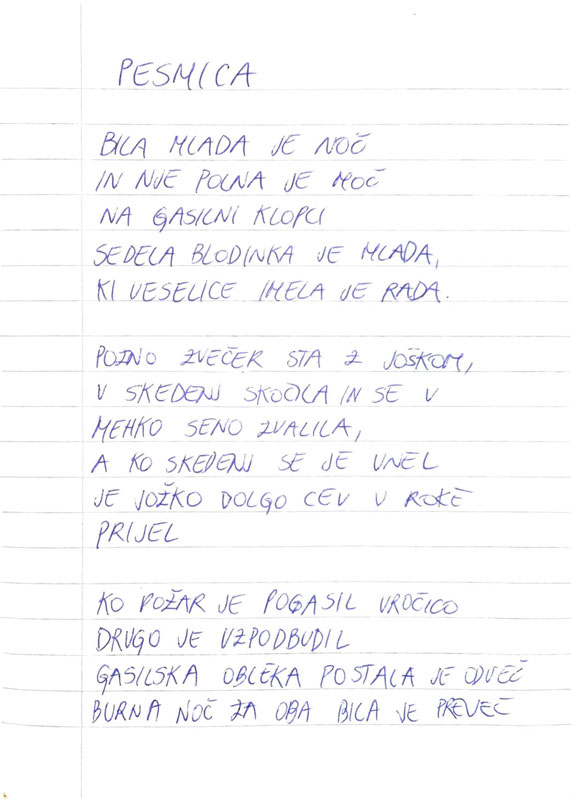 PESMICA
BILA MLADA JE NOČ
IN NJE POLNA JE MOČ
NA GASILNI KLOPCI
SEDELA BLODINKA JE MLADA,
KI VESELICE IMELA JE RADA.
POZNO ZVEČER STA Z JOŠKOM,
V SKEDENJ SKOČILA IN SE V
MEHKO SENO ZVALILA,
A KO SKEDENJ SE JE VNEL
JE JOŽKO DOLGO CEV V ROKE
PRIJEL
KO POŽAR JE POGASIL VROČICO
DRUGO JE VZPODBUDIL
GASILSKA OBLEKA POSTALA JE ODVEČ
BURNA NOČ ZA OBA BILA JE PREVEČ